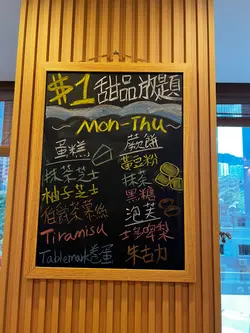 $1 甜品放題
Mon-Thu
蛋糕
抹茶芝士
柚子芝士
伯爵茶菓絲
Tiramisu
Tablemark卷蛋
蕨餅
黃豆粉
抹茶
黑糖
泡芙
士多啤梨
朱古力